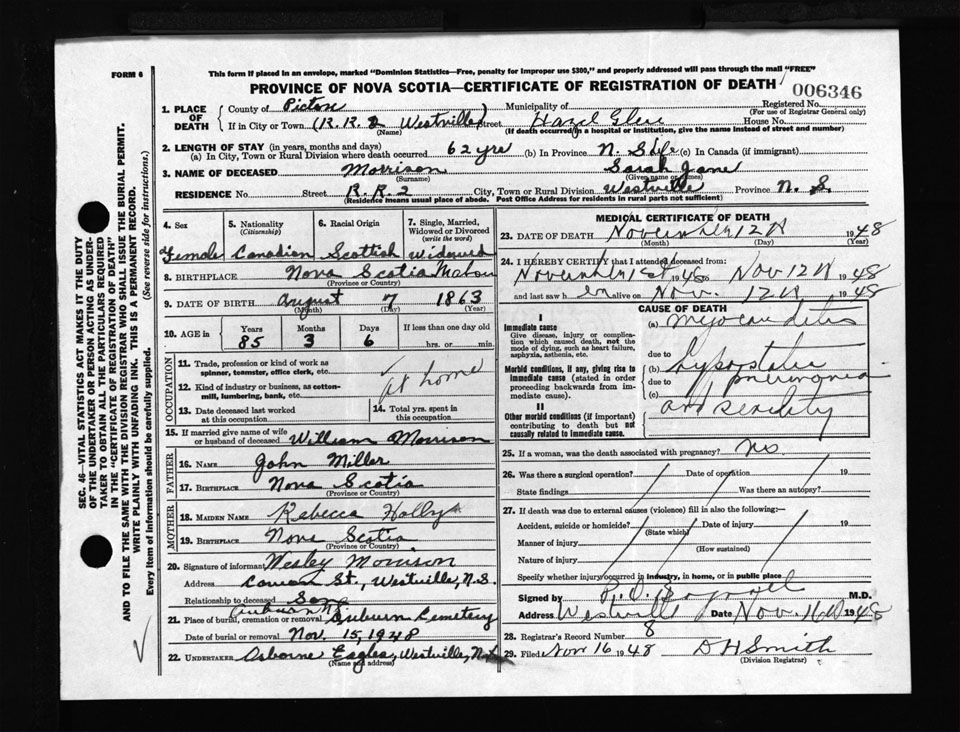 FORM 6
This form if placed in an envelope, marked "Dominion Statistics—Free, penalty for improper use $300," and properly addressed will pass through the mail "FREE"
PROVINCE OF NOVA SCOTIA—CERTIFICATE OF REGISTRATION OF DEATH
006346
1. PLACE OF DEATH
County of Pictou Municipality of Registered No.
(For use of Registrar General only)
If in City or Town (R.R. 2 Westville) Street Hazel Glen House No.
(Name) (If death occurred in a hospital or institution, give the name instead of street and number)
2. LENGTH OF STAY (in years, months and days)
(a) In City, Town or Rural Division where death occurred 62 yrs (b) In Province N. S Life (c) In Canada (if immigrant)
3. NAME OF DECEASED Morrison Sarah Jane
(Surname) (Given name or names)
RESIDENCE No. Street R.R. 2 City, Town or Rural Division Westville Province N. S.
(Residence means usual place of abode. Post Office Address for residents in rural parts not sufficient)
4. Sex 5. Nationality (Citizenship) 6. Racial Origin 7. Single, Married, Widowed or Divorced (write the word)
Female Canadian Scottish Widowed
8. BIRTHPLACE Nova Scotia
(Province or Country)
9. DATE OF BIRTH August 7 1863
(Month) (Day) (Year)
10. AGE in Years Months Days If less than one day old
85 3 6 hrs. or min.
OCCUPATION
11. Trade, profession or kind of work as spinner, teamster, office clerk, etc.
at home
12. Kind of industry or business, as cotton-mill, lumbering, bank, etc.
13. Date deceased last worked at this occupation
14. Total yrs. spent in this occupation
15. If married give name of wife or husband of deceased William Morrison
FATHER
16. NAME John Miller
17. BIRTHPLACE Nova Scotia
(Province or Country)
MOTHER
18. MAIDEN NAME Rebecca
19. BIRTHPLACE Nova Scotia
(Province or Country)
20. Signature of informant Wesley Morrison
Address Cowan St., Westville, N.S.
Relationship to deceased Son
21. Place of burial, cremation or removal Auburn Cemetery
Auburn N.S.
Date of burial or removal Nov. 15, 1948
22. UNDERTAKER Osborne Eagles, Westville, N.S.
(Name and address)
MEDICAL CERTIFICATE OF DEATH
23. DATE OF DEATH November 12th 1948
(Month) (Day) (Year)
24. I HEREBY CERTIFY that I attended deceased from:
November 1st 1948 to Nov 12th 1948
and last saw h er alive on Nov. 12th 1948
CAUSE OF DEATH
I
Immediate cause
Give disease, injury or complication which caused death, not the mode of dying, such as heart failure, asphyxia, asthenia, etc.
(a) Myocarditis
due to
Morbid conditions, if any, giving rise to immediate cause (stated in order proceeding backwards from immediate cause).
(b) hypostatic
due to pneumonia
(c)
II
Other morbid conditions (if important) contributing to death but not causally related to immediate cause.
and senility
25. If a woman, was the death associated with pregnancy? No.
26. Was there a surgical operation? Date of operation 19
State findings Was there an autopsy?
27. If death was due to external causes (violence) fill in also the following:—
Accident, suicide or homicide? Date of injury 19
(State which)
Manner of injury
(How sustained)
Nature of injury
Specify whether injury occurred in industry, in home, or in public place
Signed by M.D.
Address Westville Date Nov. 16th 1948
28. Registrar's Record Number 8
29. Filed Nov 16 1948 D H Smith
(Division Registrar)
SEC. 46—VITAL STATISTICS ACT MAKES IT THE DUTY
OF THE UNDERTAKER OR PERSON ACTING AS UNDER-
TAKER TO OBTAIN ALL THE PARTICULARS REQUIRED
IN THE "CERTIFICATE OF REGISTRATION OF DEATH"
AND TO FILE THE SAME WITH THE DIVISION REGISTRAR WHO SHALL ISSUE THE BURIAL PERMIT.
WRITE PLAINLY WITH UNFADING INK. THIS IS A PERMANENT RECORD.
Every item of information should be carefully supplied. (See reverse side for instructions.)